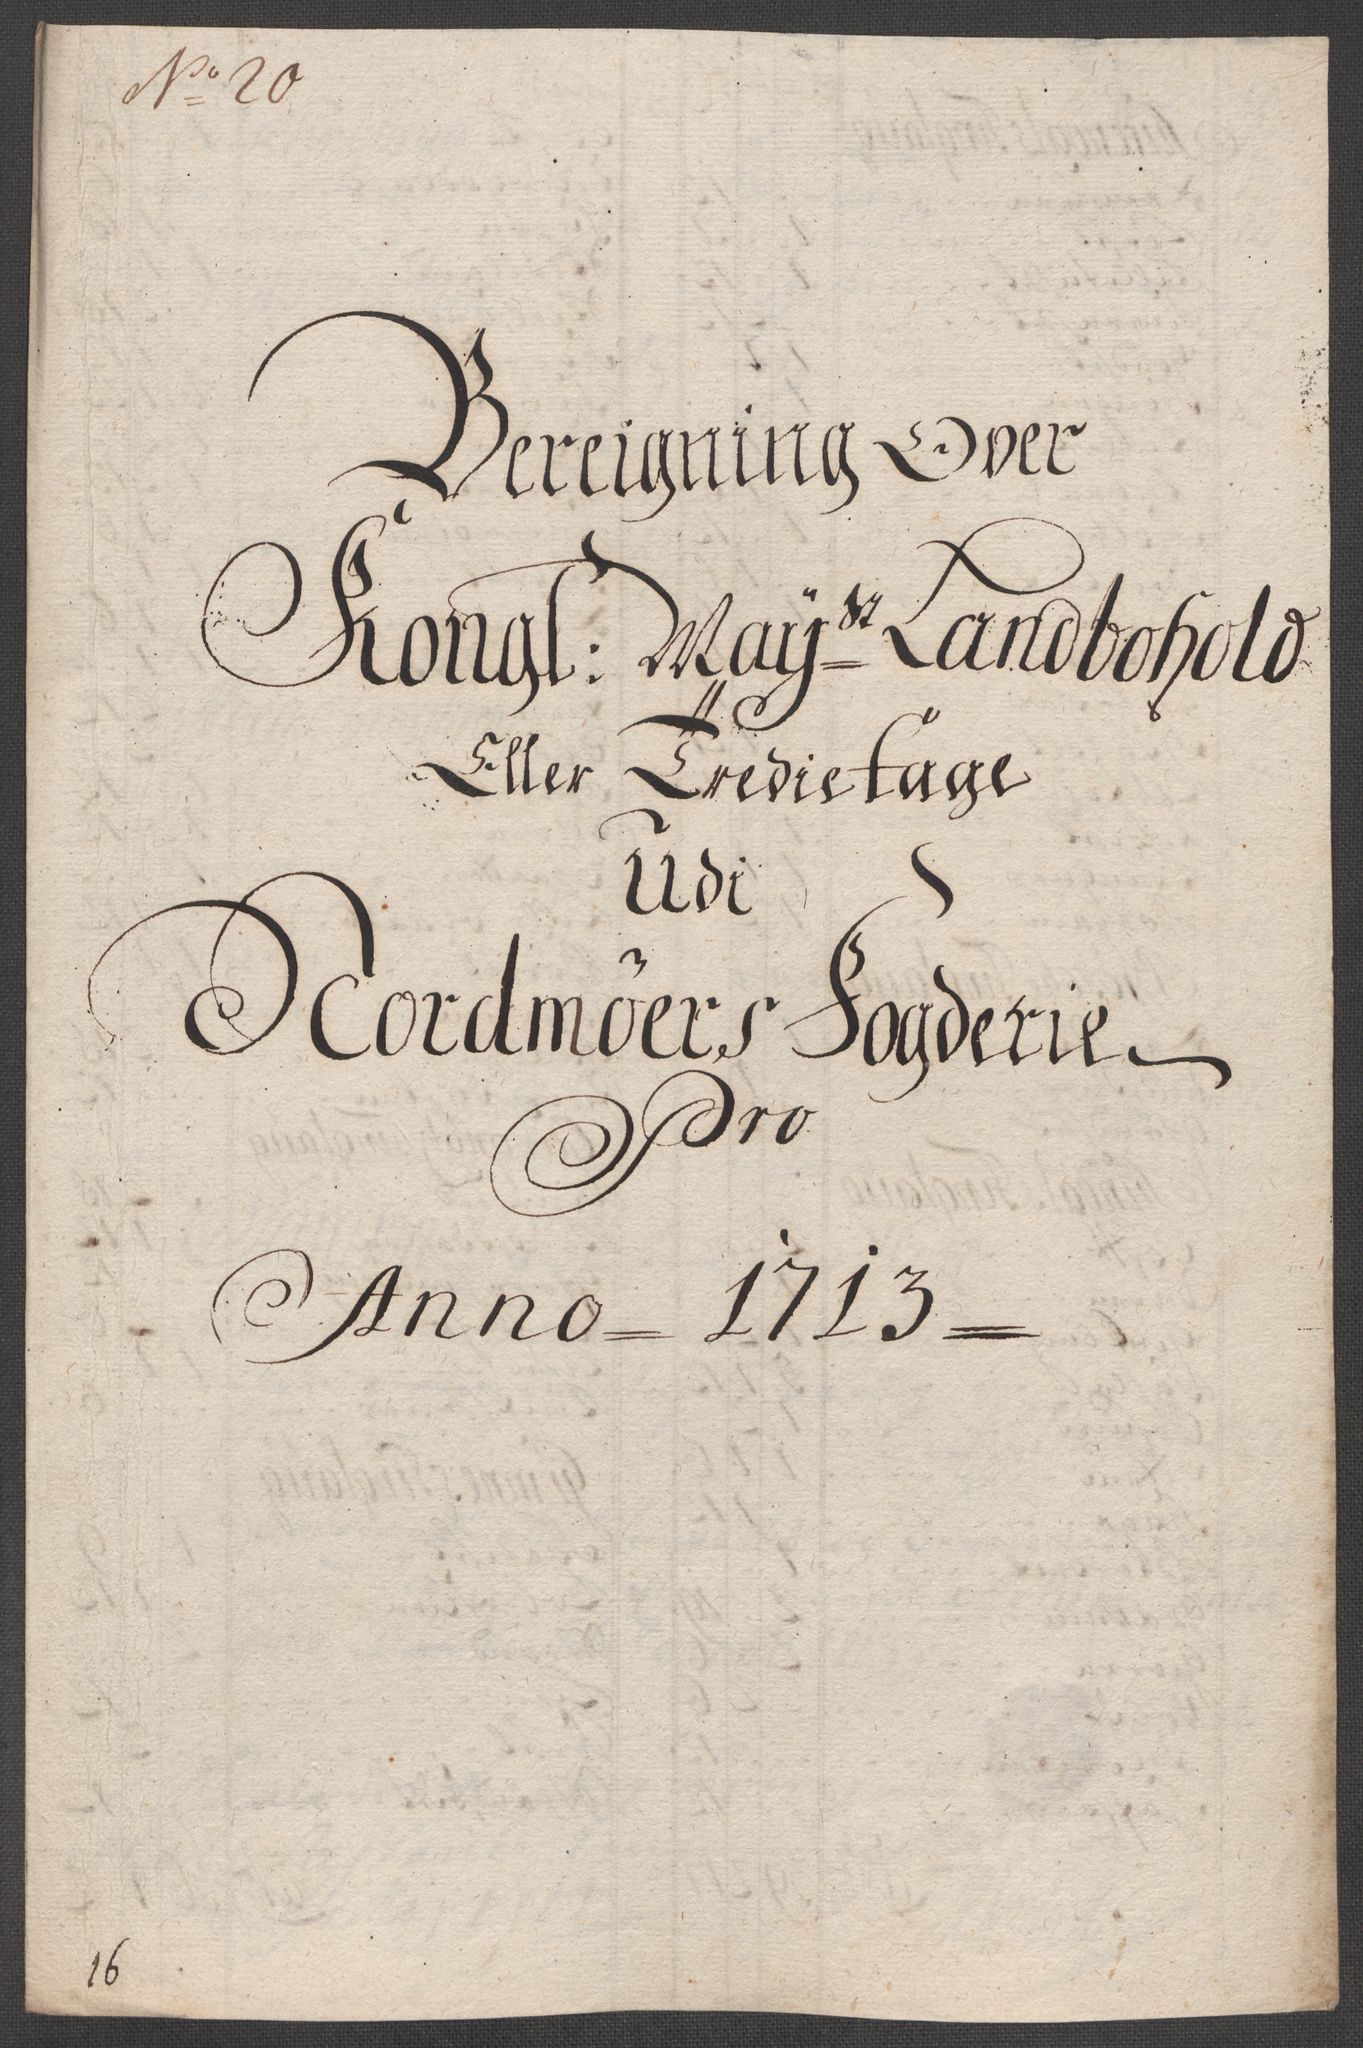 No 20
Bereigning Over
Kongl: Maÿst Landbohold
Eller Tredietage
Udi
Nordmöers Fogderie
Pro
Anno 1713
16